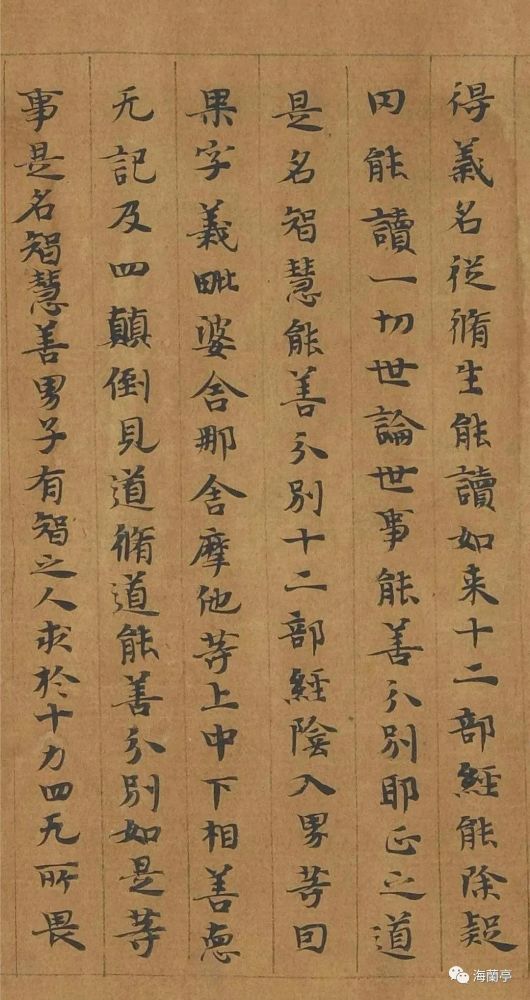 得義名從脩生能讀如来十二部經能除疑
囙能讀一切世論世事能善分別耶正之道
是名智慧能善分別十二部經陰入界等囙
果字義毗婆舍那舍摩他等上中下相善惡
无記及四顛倒見道脩道能善分別如是等
事是名智慧善男子有智之人求於十力四无所畏
海蘭亭